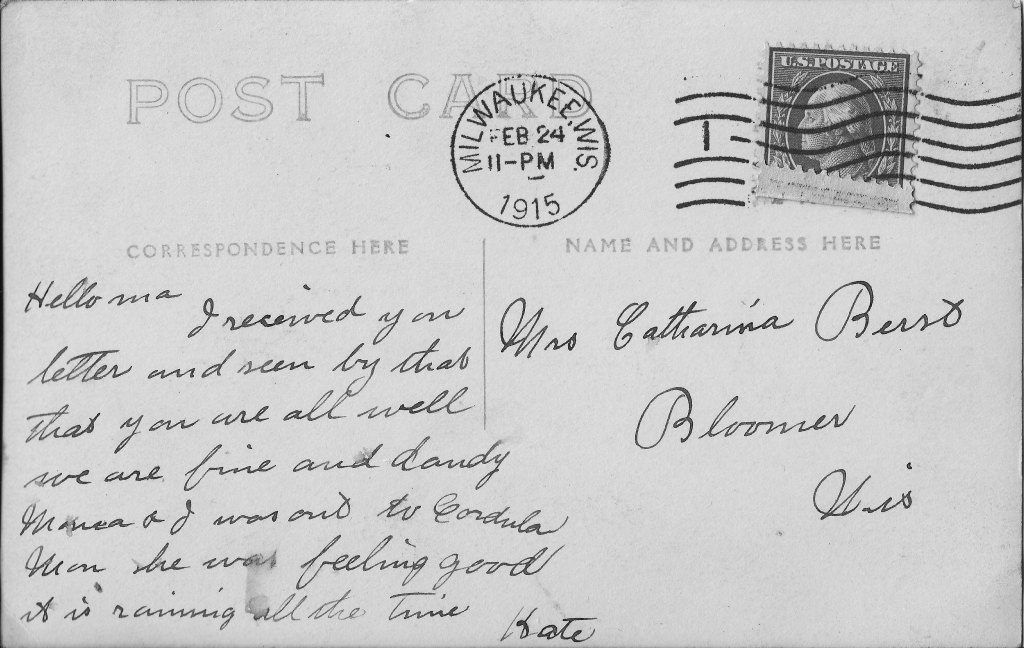 POST CARD
MILWAUKEE, WIS.
FEB 24
11-PM
1915
1
U.S. POSTAGE
CORRESPONDENCE HERE
NAME AND ADDRESS HERE
Hello ma
I received you
letter and seen by that
that you are all well
we are fine and dandy
& I was out to Cordula
Mon she was feeling good
it is raining all the time
Kate
Mrs Catharina Berst
Bloomer
Wis